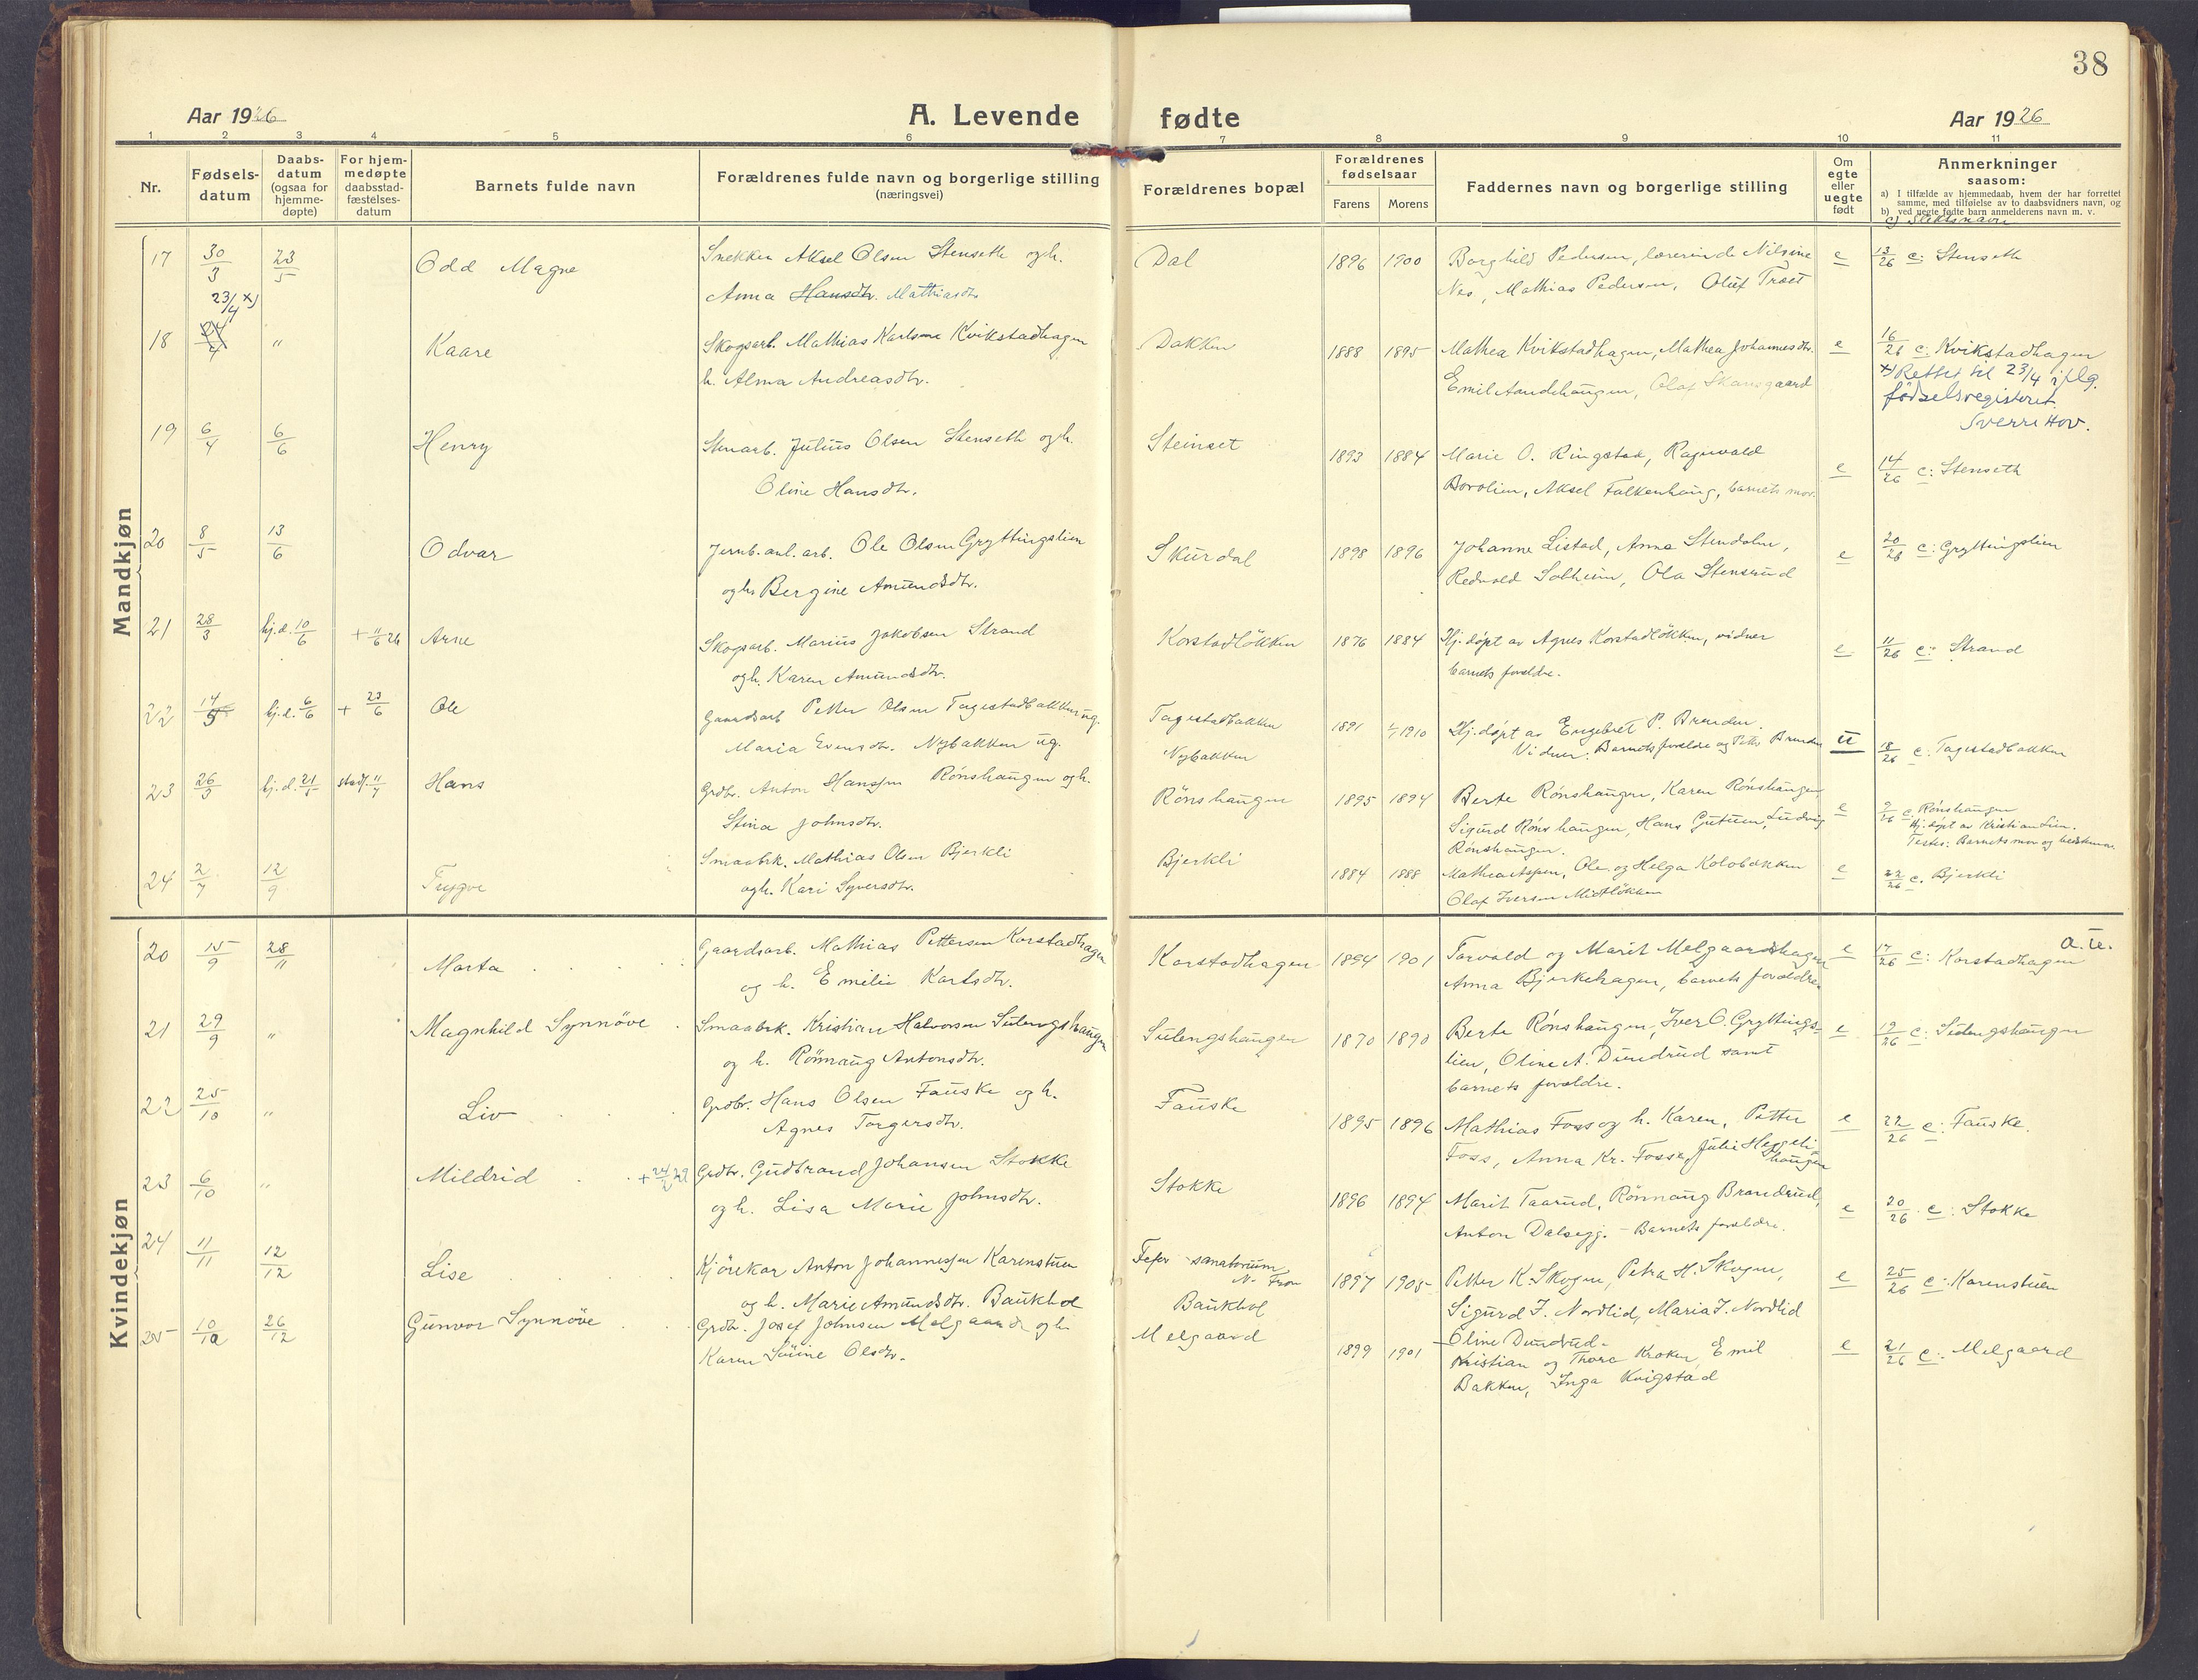 38
Aar 1926 A. Levende fødte Aar 1926
1 2 3 4 5 6 7 8 9 10 11
Nr.
Fødsels-
datum
Daabs-
datum
(ogsaa for
hjemme-
døpte)
For hjem-
medøpte
daabsstad-
fæstelses-
datum
Barnets fulde navn
Forældrenes fulde navn og borgerlige stilling
(næringsvei)
Forældrenes bopæl
Forældrenes
fødselsaar
Farens Morens
Faddernes navn og borgerlige stilling
Om
egte
eller
uegte
født
Anmerkninger
saasom:
a) I tilfælde av hjemmedaab, hvem der har forrettet
samme, med tilføielse av to daabsvidners navn, og
b) ved uegte fødte barn anmelderens navn m. v.
c) Slektsnavn
Mandkjøn
17 30/3 23/5 Odd Magne Snekker Aksel Olsen Stenseth og h. Dal 1896 1900 Borghild Pedersen, lærerinde Nilsine e 13/26 c: Stenseth
Anna Hansdtr. Mathiasdtr Nes, Mathias Pedersen, Oluf Træet
23/4 x)
18 24/4 " Kaare Skogsarb. Mathias Karlsen Kvikstadhagen Bakken 1888 1895 Mathea Kvikstadhagen, Mathea Johannesdtr. e 16/26 c: Kvikstadhagen
h. Alma Andreasdtr. Emil Aandehaugen, Olaf Skansgaard
x) Rettet til 23/4 iflg.
fødselsregisteret.
Sverre Hov.
19 6/4 6/6 Henry Stenarb. Julius Olsen Stenseth og h. Steinset 1893 1884 Marie O. Ringstad, Ragnvald e 14/26 c: Stenseth
Oline Hansdtr. Borolien, Aksel Falkenhaug, barnets mor.
20 8/5 13/6 Odvar Jernb.anl.arb. Ole Olsen Gryttingslien Skurdal 1898 1896 Johanne Listad, Anna Stendalen, e 20/26 c: Gryttingslien
og h. Bergine Amundsdtr. Redvald Solheim, Ola Stensrud
21 28/3 hj.d. 10/6 + 11/6 26 Arne Skogsarb. Marius Jakobsen Strand Korstadløkken 1876 1884 Hj. døpt av Agnes Korstadløkken, vidner e 11/26 c: Strand
og h. Karen Amundsdtr. barnets forældre.
22 14/5 hj.d. 6/6 + 23/6 Ole Gaardsarb Petter Olsen Tagestadbakken ug. Tagestadbakken 1891 1910 Hj. døpt av Engebret P. Brenden. u 18/26 c: Tagestadbakken
Maria Evensdtr. Nybakken ug. Nybakken Vidner: Barnets forældre og Petter Brenden
23 26/3 hj.d. 21/5 stadf. 11/7 Hans Grdbr. Anton Hanssen Rønshaugen og h. Rønshaugen 1895 1894 Berte Rønshaugen, Karen Rønshaugen, e 9/26 c. Rønshaugen
Stina Johnsdtr. Sigurd Rønshaugen, Hans Gutuen, Ludvig Hj. døpt av Kristian Lien.
Rønshaugen. Testes: Barnets mor og bedstemor
24 2/7 12/9 Trygve Smaabrk. Mathias Olsen Bjerkli Bjerkli 1884 1888 Mathea Aspen, Ole og Helga Kolobakken e 22/26 c. Bjerkli
og h. Kari Syversdtr. Olaf Iversen Midtløkken
Kvindekjøn
a. u.
20 15/9 28/11 Marta Gaardsarb. Mathias Pettersen Korstadhagen Korstadhagen 1894 1901 Torvald og Marit Melgaardshagen e 17/26 c: Korstadhagen
og h. Emilie Karlsdtr. Anna Bjerkehagen, barnets forældre.
21 29/9 " Magnhild Synnøve Smaabrk. Kristian Halvorsen Sulengshaugen Sulengshaugen 1870 1890 Berte Rønshaugen, Iver O. Gryttings- e 19/26 c: Sulengshaugen
og h. Rønnaug Antonsdtr. lien, Oline A. Dundrud samt
barnets forældre.
22 25/10 " Liv Grdbr. Hans Olsen Fauske og h. Fauske 1895 1896 Mathias Foss og h. Karen, Petter e 22/26 c: Fauske.
Agnes Torgersdtr. Foss, Anna Kr. Fosse, Julie Heggeli-
haugen
23 6/10 " Mildrid + 24/2 29 Grdbr. Gudbrand Johansen Stokke Stokke 1896 1894 Marit Taarud, Rønnaug Brandrud, e 20/26 c: Stokke
og h. Lisa Marie Johnsdtr. Anton Dalsegg. - Barnets forældre.
24 11/11 12/12 Lise Kjørekar Anton Johannessen Karenstuen Fefor sanatorium 1897 1905 Petter K. Skogen, Petra H. Skogen, e 25/26 c: Karenstuen
N. Fron
og h. Marie Amundsdtr. Baukhol Baukhol Sigurd J. Nordlid, Maria J. Nordlid
Oline Dundrud.
25 10/10 26/12 Gunvor Synnøve Grdbr. Josef Johnsen Melgaard og h. Melgaard 1899 1901 Kristian og Thora Kroken, Emil e 21/26 c: Melgaard
Karen Olsdtr. Bakken, Inga Kvigstad